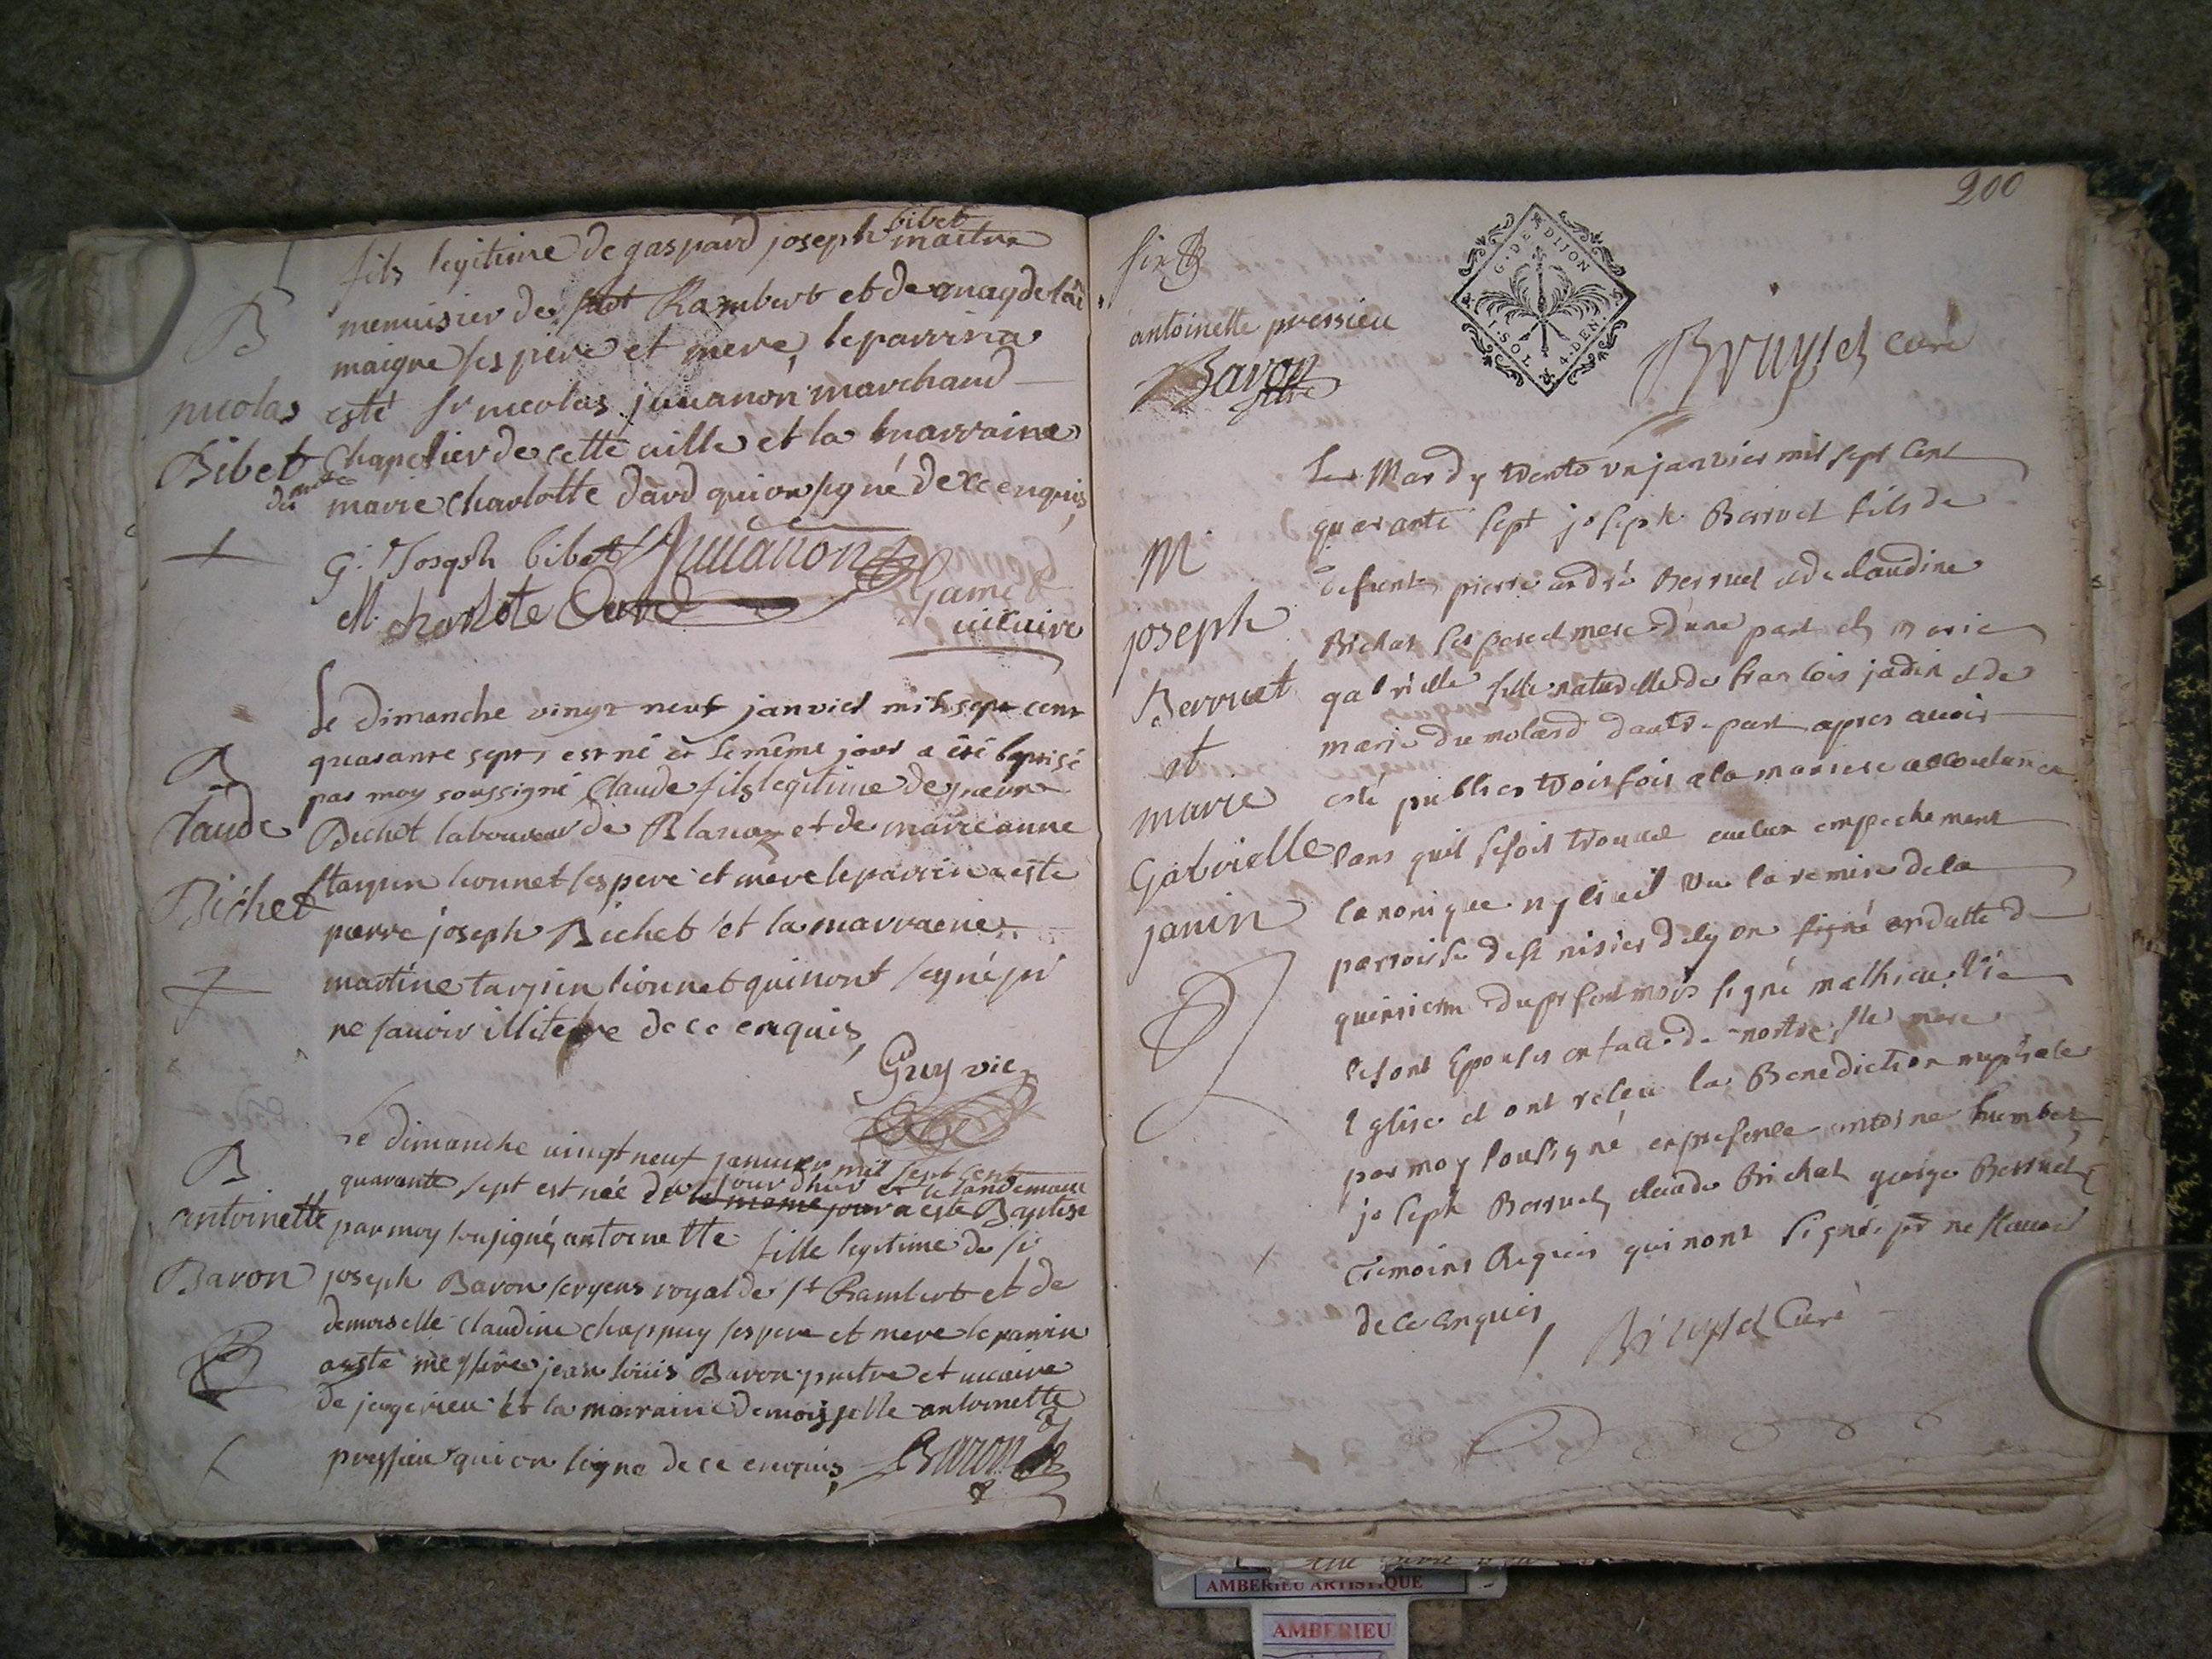 fils legitime de gaspard joseph bibet maitre
menuisier de st Rambert et de magdelaine
maigre ses pere et mere, le parrin a
esté sr nicolas juuanon marchand
Chapelier de cette uille et la marraine
marie Charlotte dard qui on signé de ce enquis,
B
nicolas
Bibet
+
G. Joseph bibet Juuanon
M. charlote Dard Game
uicaire
Le dimanche vingt neuf janvier mil sept cent
quarante sept, est né et le même jour a été baptisé
par moy soussigné Claude fils legitime de pierre
Bichet laboureur de Blanaz et de marie anne
tarpin lionnet ses pere et mere le parrin a esté
pierre joseph Bichet et la marraine
martine tarpin lionnet qui n'ont signé pr
ne sauoir illiteré de ce enquis,
Guy vic
B
Claude
Bichet
Le dimanche uingt neuf januier mil sept cent
quarante sept est née du jourdhuy et le landemain
le meme jour a esté Baptisé
par moy sousigné, antoinette fille legitime de sr
joseph Baron sergens royal de st Rambert et de
demoiselle claudine chappuy ses pere et mere le parrin
a esté messire jean louis Baron pretre et uicaire
de jugerieu et la marraine demoisselle antoinette
pressieu qui on signé de ce enquis, Baron
B
antoinette
Baron
200
antoinette pressieu
G. DE DIJON
1. SOL 4. DEN.
Baron
Bruyset curé
Le Mardy trente un janvier mil sept cent
quarante sept joseph Berruet fils de
defunts pierre andré Berruet et de claudine
Bichat ses pere et mere d'une part et marie
gabrielle fille naturelle de francois jadin et de
marie du molard dautre part apres auoir
esté publies trois fois a la maniere accoutumée
sans quil se soit trouué aucun empechement
canonique ny ciuil vu la remise de la
parroisse de st nisier de lyon signé en datte du
quinzieme du present mois signé mathieu vic
se sont Epousés en face de nostre ste mere
Eglise et ont receu la Benediction nuptiale
par moy sousigné en presence antoine humbert
joseph Berruet, claude Brichat george Berruet
temoins Requis qui n'ont signé pr ne scauoir
de ce Enquis, Bruyset Curé
M
joseph
Berruet
et
marie
Gabrielle
janin
AMBERIEU ARTISTIQUE
AMBERIEU